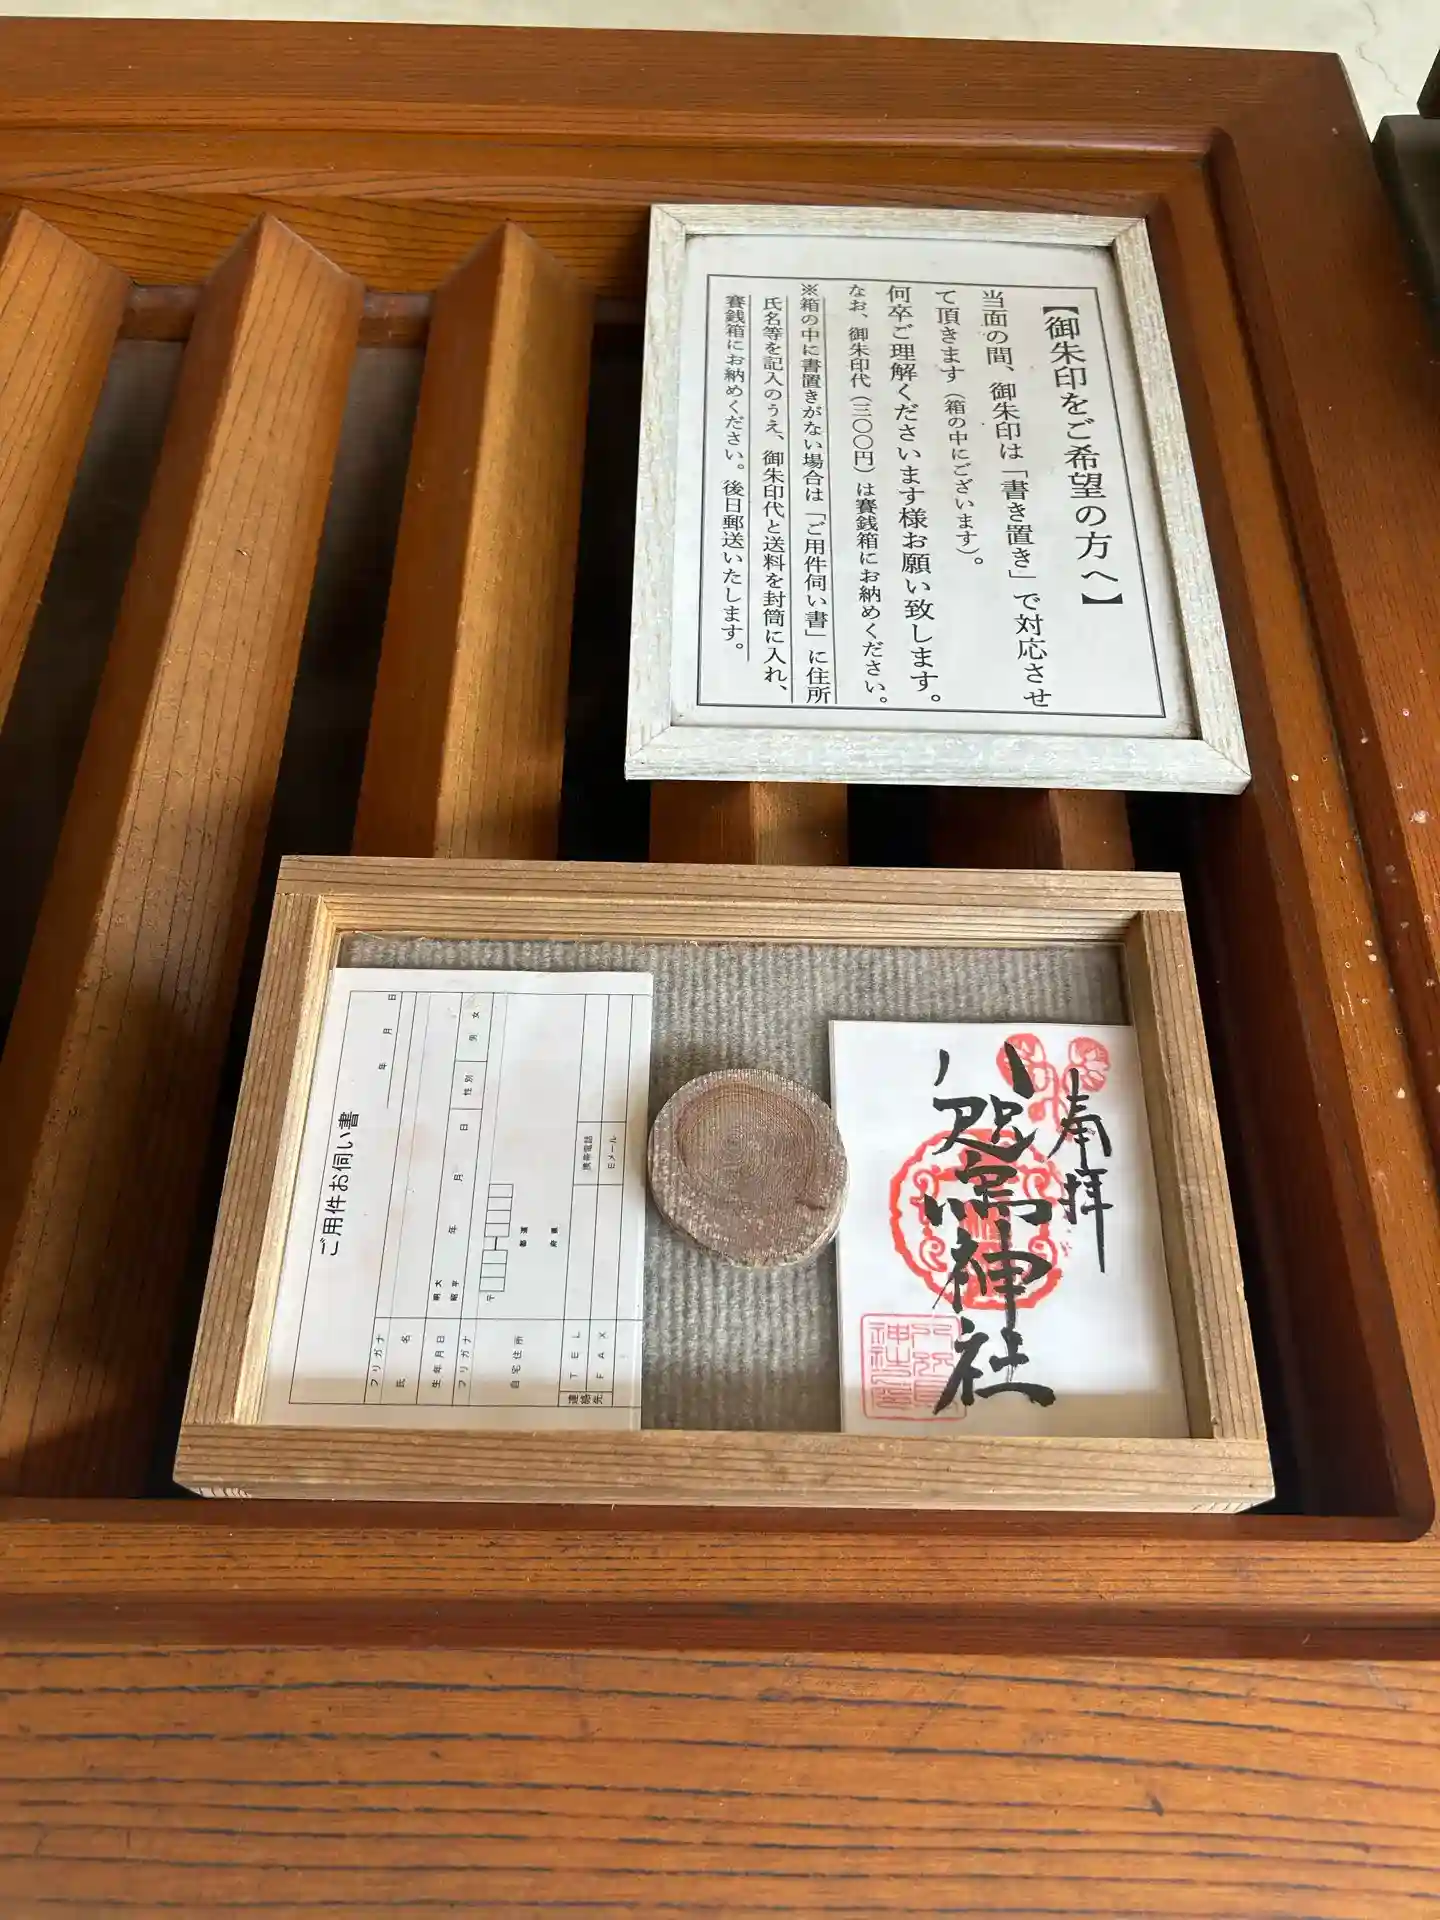 【御朱印をご希望の方へ】
当面の間、御朱印は「書き置き」で対応させ
て頂きます（箱の中にございます）。
何卒ご理解くださいます様お願い致します。
なお、御朱印代（三〇〇円）は賽銭箱にお納めください。
※箱の中に書置きがない場合は「ご用件伺い書」に住所
氏名等を記入のうえ、御朱印代と送料を封筒に入れ、
賽銭箱にお納めください。後日郵送いたします。
奉拝
八咫烏神社
ご用件お伺い書
年 月 日
フリガナ
氏 名
生年月日
明 大
昭 平
年 月 日
性別
男 女
フリガナ
自宅住所
〒
都 道
府 県
連絡先
TEL
携帯電話
FAX
Eメール